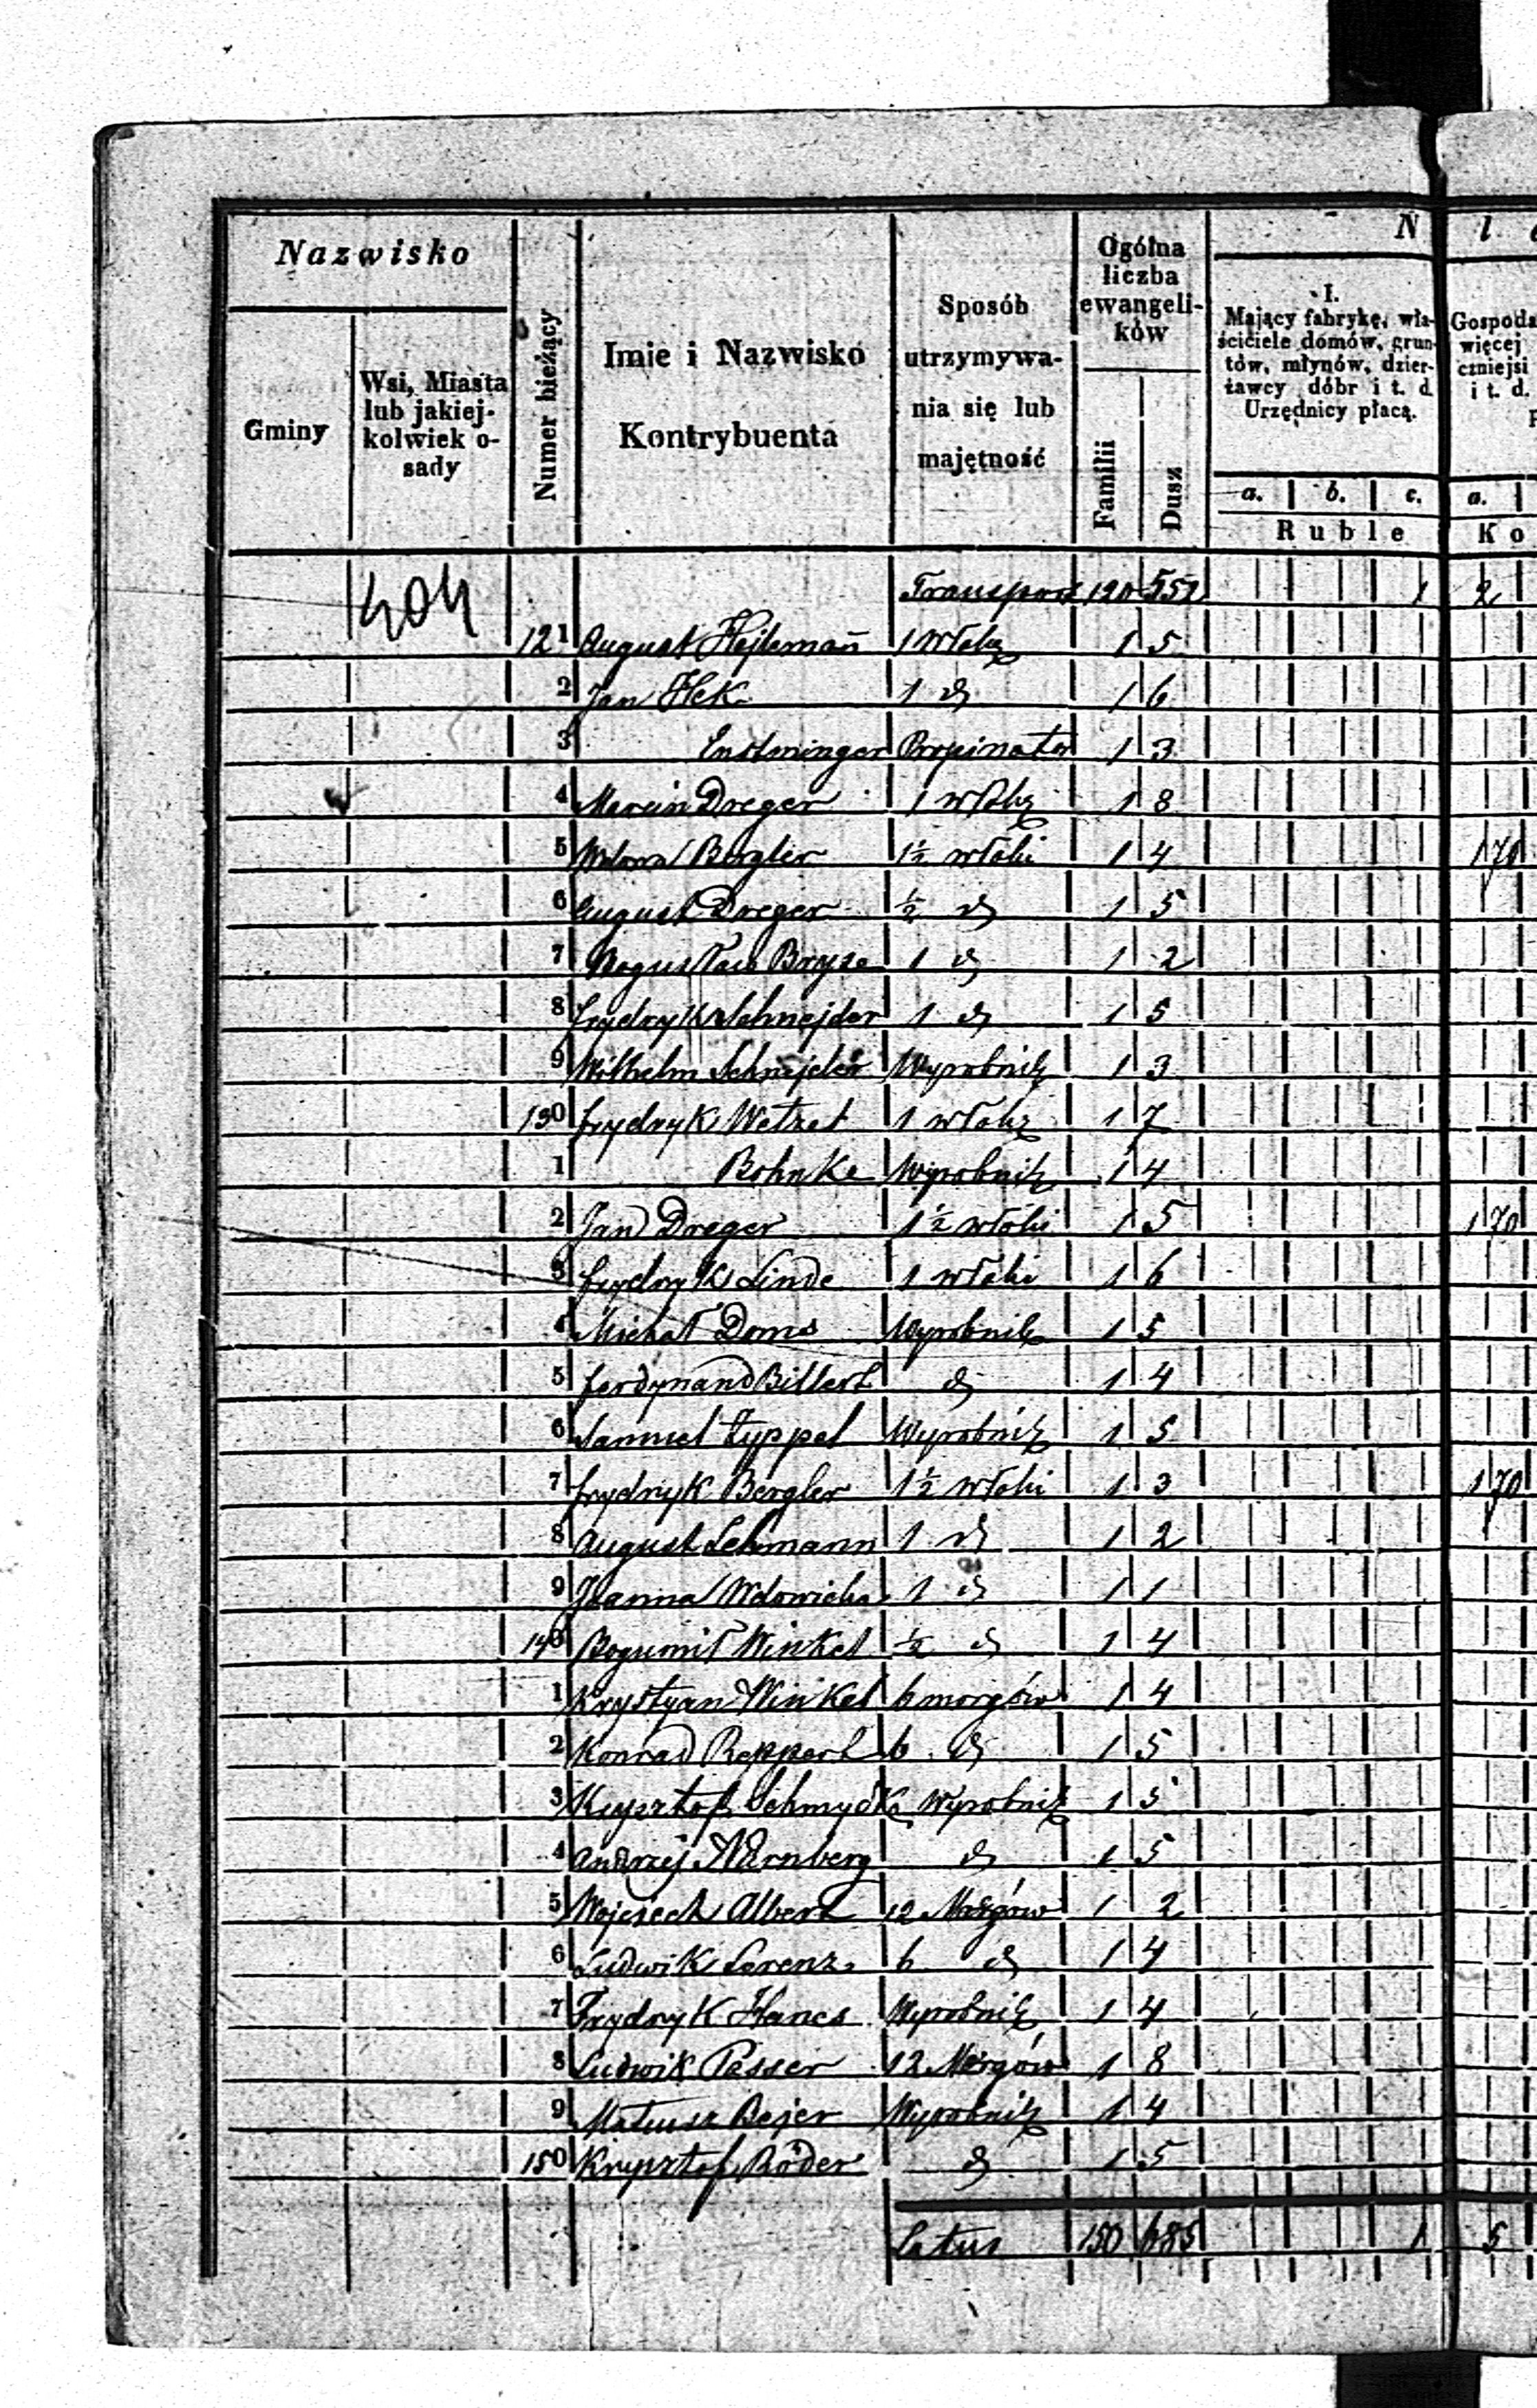 Nazwisko
Gminy
Wsi, Miasta
lub jakiej-
kolwiek o-
sady
Numer bieżący
Imie i Nazwisko
Kontrybuenta
Sposób
utrzymywa-
nia się lub
majętność
Ogólna
liczba
ewangeli-
ków
Familii
Dusz
N
I.
Mający fabrykę, wła-
ściciele domów, grun-
tów, młynów, dzier-
żawcy dóbr i t. d.
Urzędnicy płacą.
a. b. c.
Ruble
l
Gospoda
więcej
czniejsi
i t. d.
a.
Ko
404
Transport 120 552 1 2
121 August Hejleman̄ 1 włoką 1 5
2 Jan Hek 1 d 1 6
3 Enstminger Propinator 1 3
4 Marcin Dreger 1 włoką 1 8
5 Wdowa Bergler 1½ włoki 1 4 1 70
6 August Dreger ½ d 1 5
7 Bogusław Bryze 1 d 1 2
8 Frydryk Schnejder 1 d 1 5
9 Wilhelm Schnejder Wyrobnik 1 3
130 Frydryk Wetzel 1 włoką 1 7
1 Bohnke Wyrobnik 1 4
2 Jan Dreger 1½ włóki 1 5 1 70
3 Frydryk Linde 1 włoki 1 6
4 Michał Doms Wyrobnik 1 5
5 Ferdynand Billert d 1 4
6 Samuel Zyppel Wyrobnik 1 5
7 Frydryk Bergler 1½ włoki 1 3 1 70
8 August Lehmann 1 d 1 2
9 Joanna Wdowicha 1 d 1 1
140 Bogumił Winkel ½ d 1 4
1 Krystyan Winkel 6 morgów 1 4
2 Konrad Reppert 6 d 1 5
3 Krysztof Schmydke Wyrobnik 1 5
4 Andrzej Nürnberg d 1 5
5 Wojciech Albert 12 Morgów 1 2
6 Ludwik Lorenz 6 d 1 4
7 Frydryk Hancs Wyrobnik 1 4
8 Ludwik Passer 12 Morgów 1 8
9 Mateusz Bejer Wyrobnik 1 4
150 Krysztof Röder d 1 5
Latus 150 685 1 5